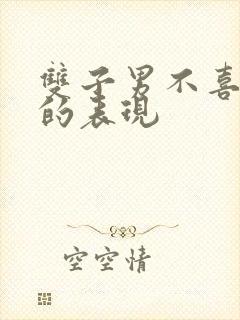 雙子男不喜
的表現
空空情